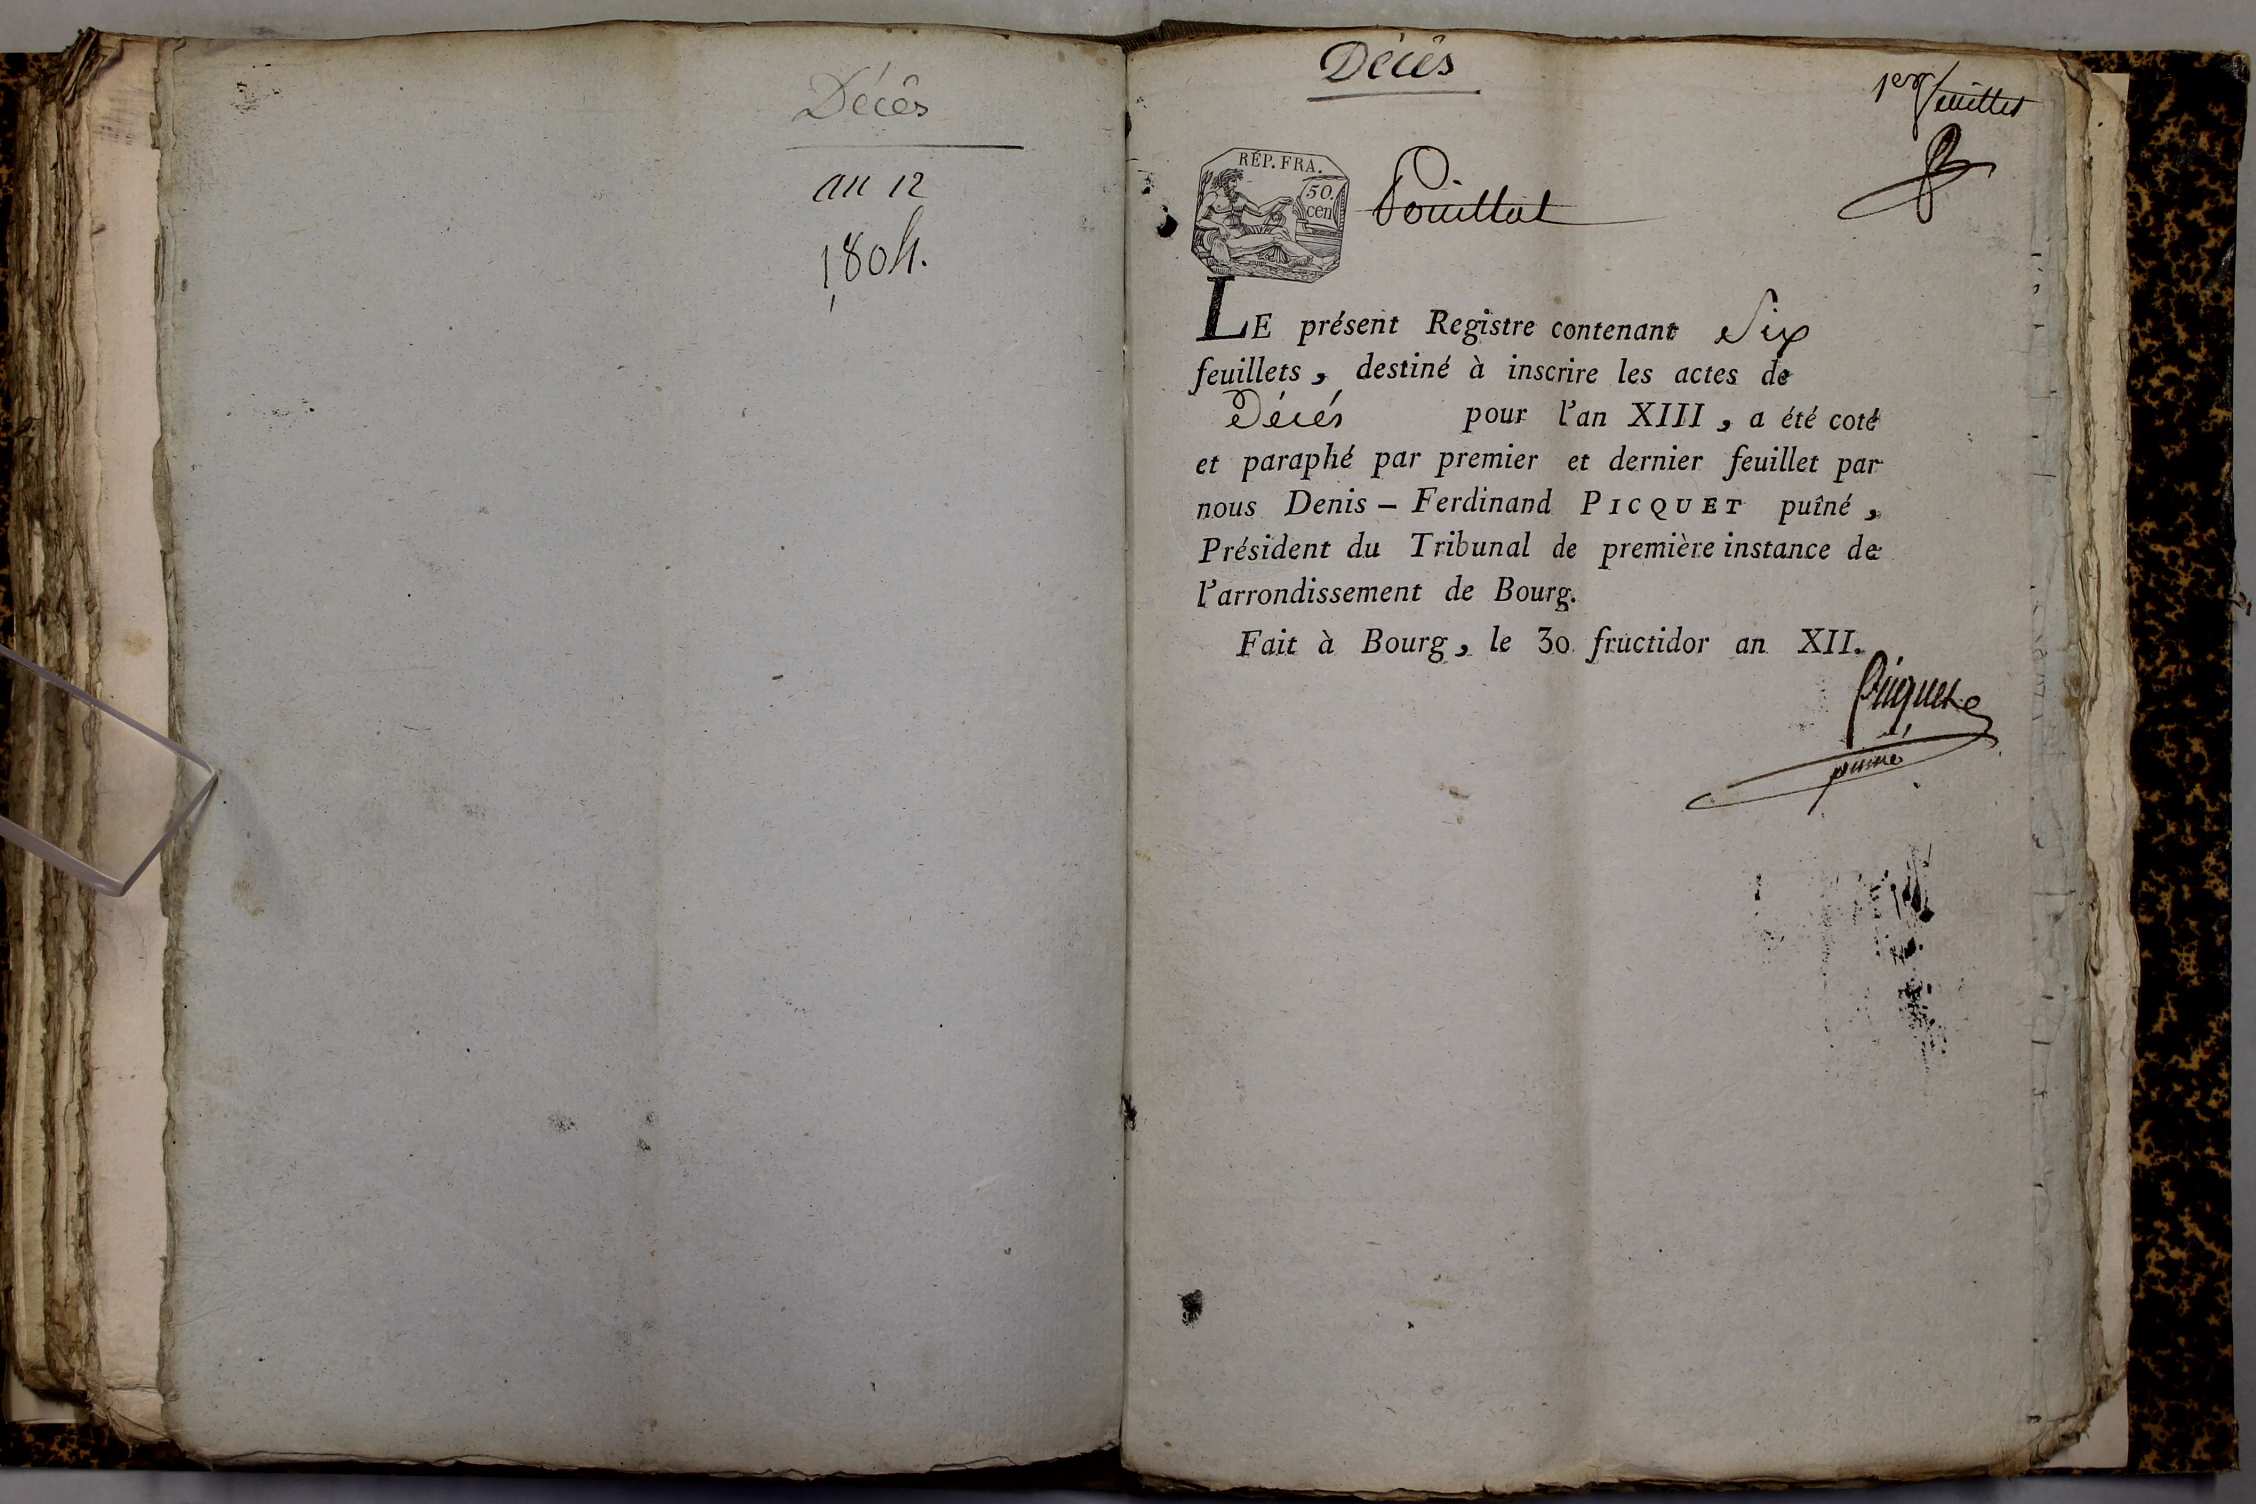 Décès
an 12
1804.
Décès
1er feuillet
RÉP. FRA.
50.
cen
Pouillat
LE présent Registre contenant Six
feuillets, destiné à inscrire les actes de
Décés pour l'an XIII, a été coté
et paraphé par premier et dernier feuillet par
nous Denis – Ferdinand PICQUET puîné,
Président du Tribunal de première instance de
l'arrondissement de Bourg.
Fait à Bourg, le 30 fructidor an XII.
Picquet
puiné